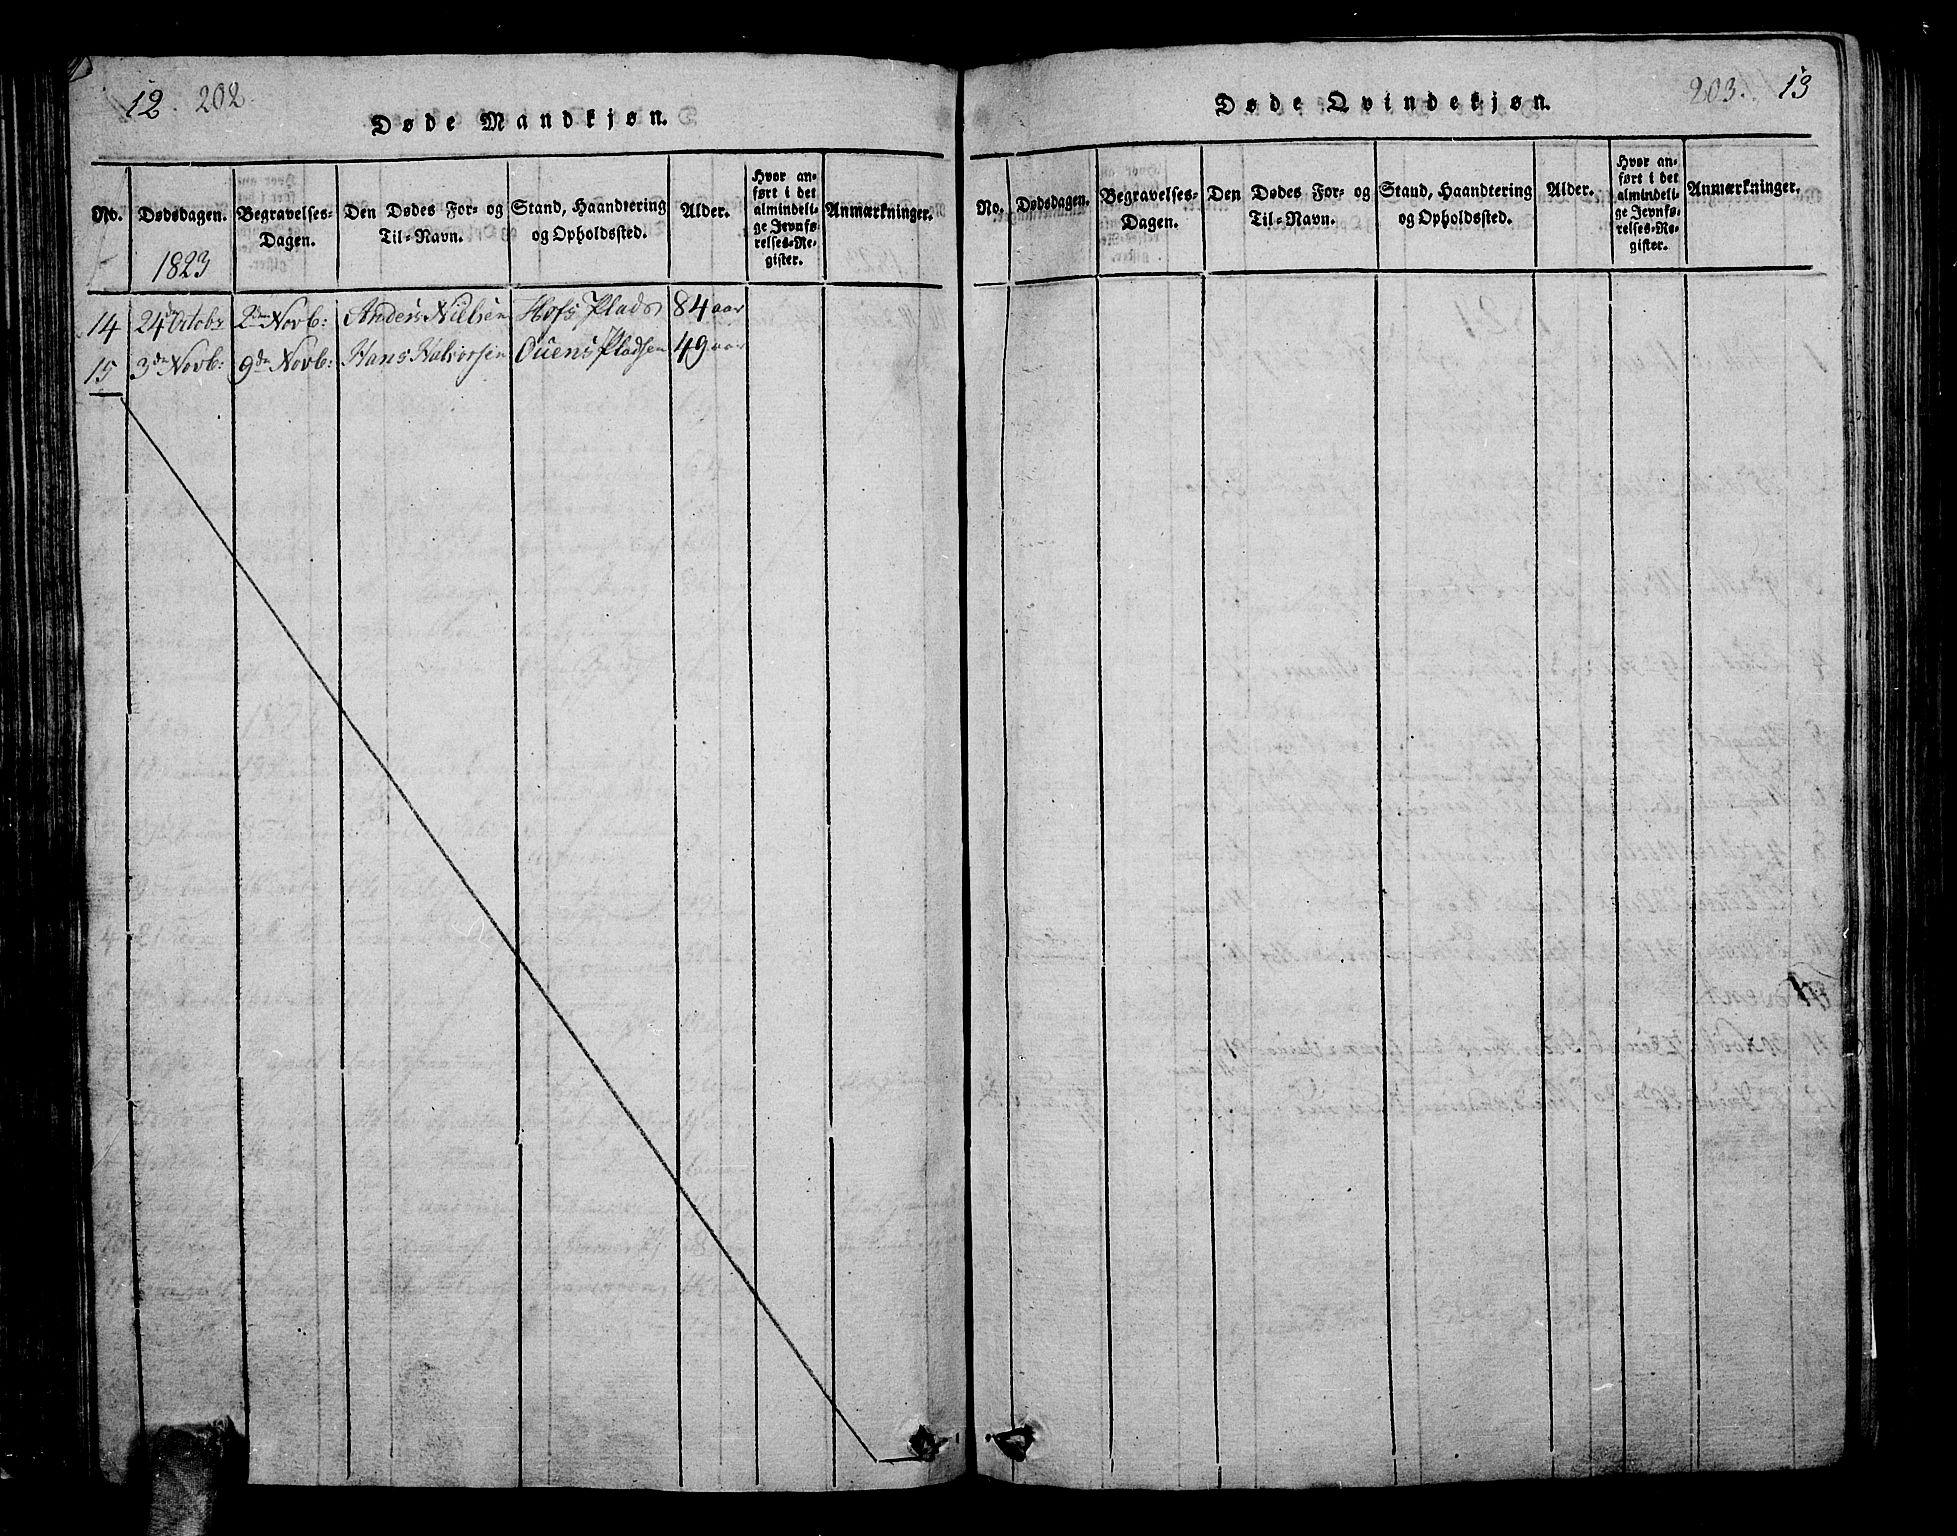 12. 202.
Døde Mandkjøn.
No.
Dødsdagen.
1823
Begravelses-
Dagen.
Den Dødes For- og
Til-Navn.
Stand, Haandtering
og Opholdssted.
Alder.
Hvor an-
ført i det
almindeli-
ge Jevnfø-
relses-Re-
gister.
Anmærkninger.
14 24 Octobr 2den Novb: Anders Nielsen Hofs Plads 84 aar
15 3de Novb: 9de Novb: Hans Halvorsen Ouens Pladsen 49 aar
203. 13
Døde Qvindekjøn.
No.
Dødsdagen.
Begravelses-
Dagen.
Den Dødes For- og
Til-Navn.
Stand, Haandtering
og Opholdssted.
Alder.
Hvor an-
ført i det
almindeli-
ge Jevnfø-
relses-Re-
gister.
Anmærkninger.